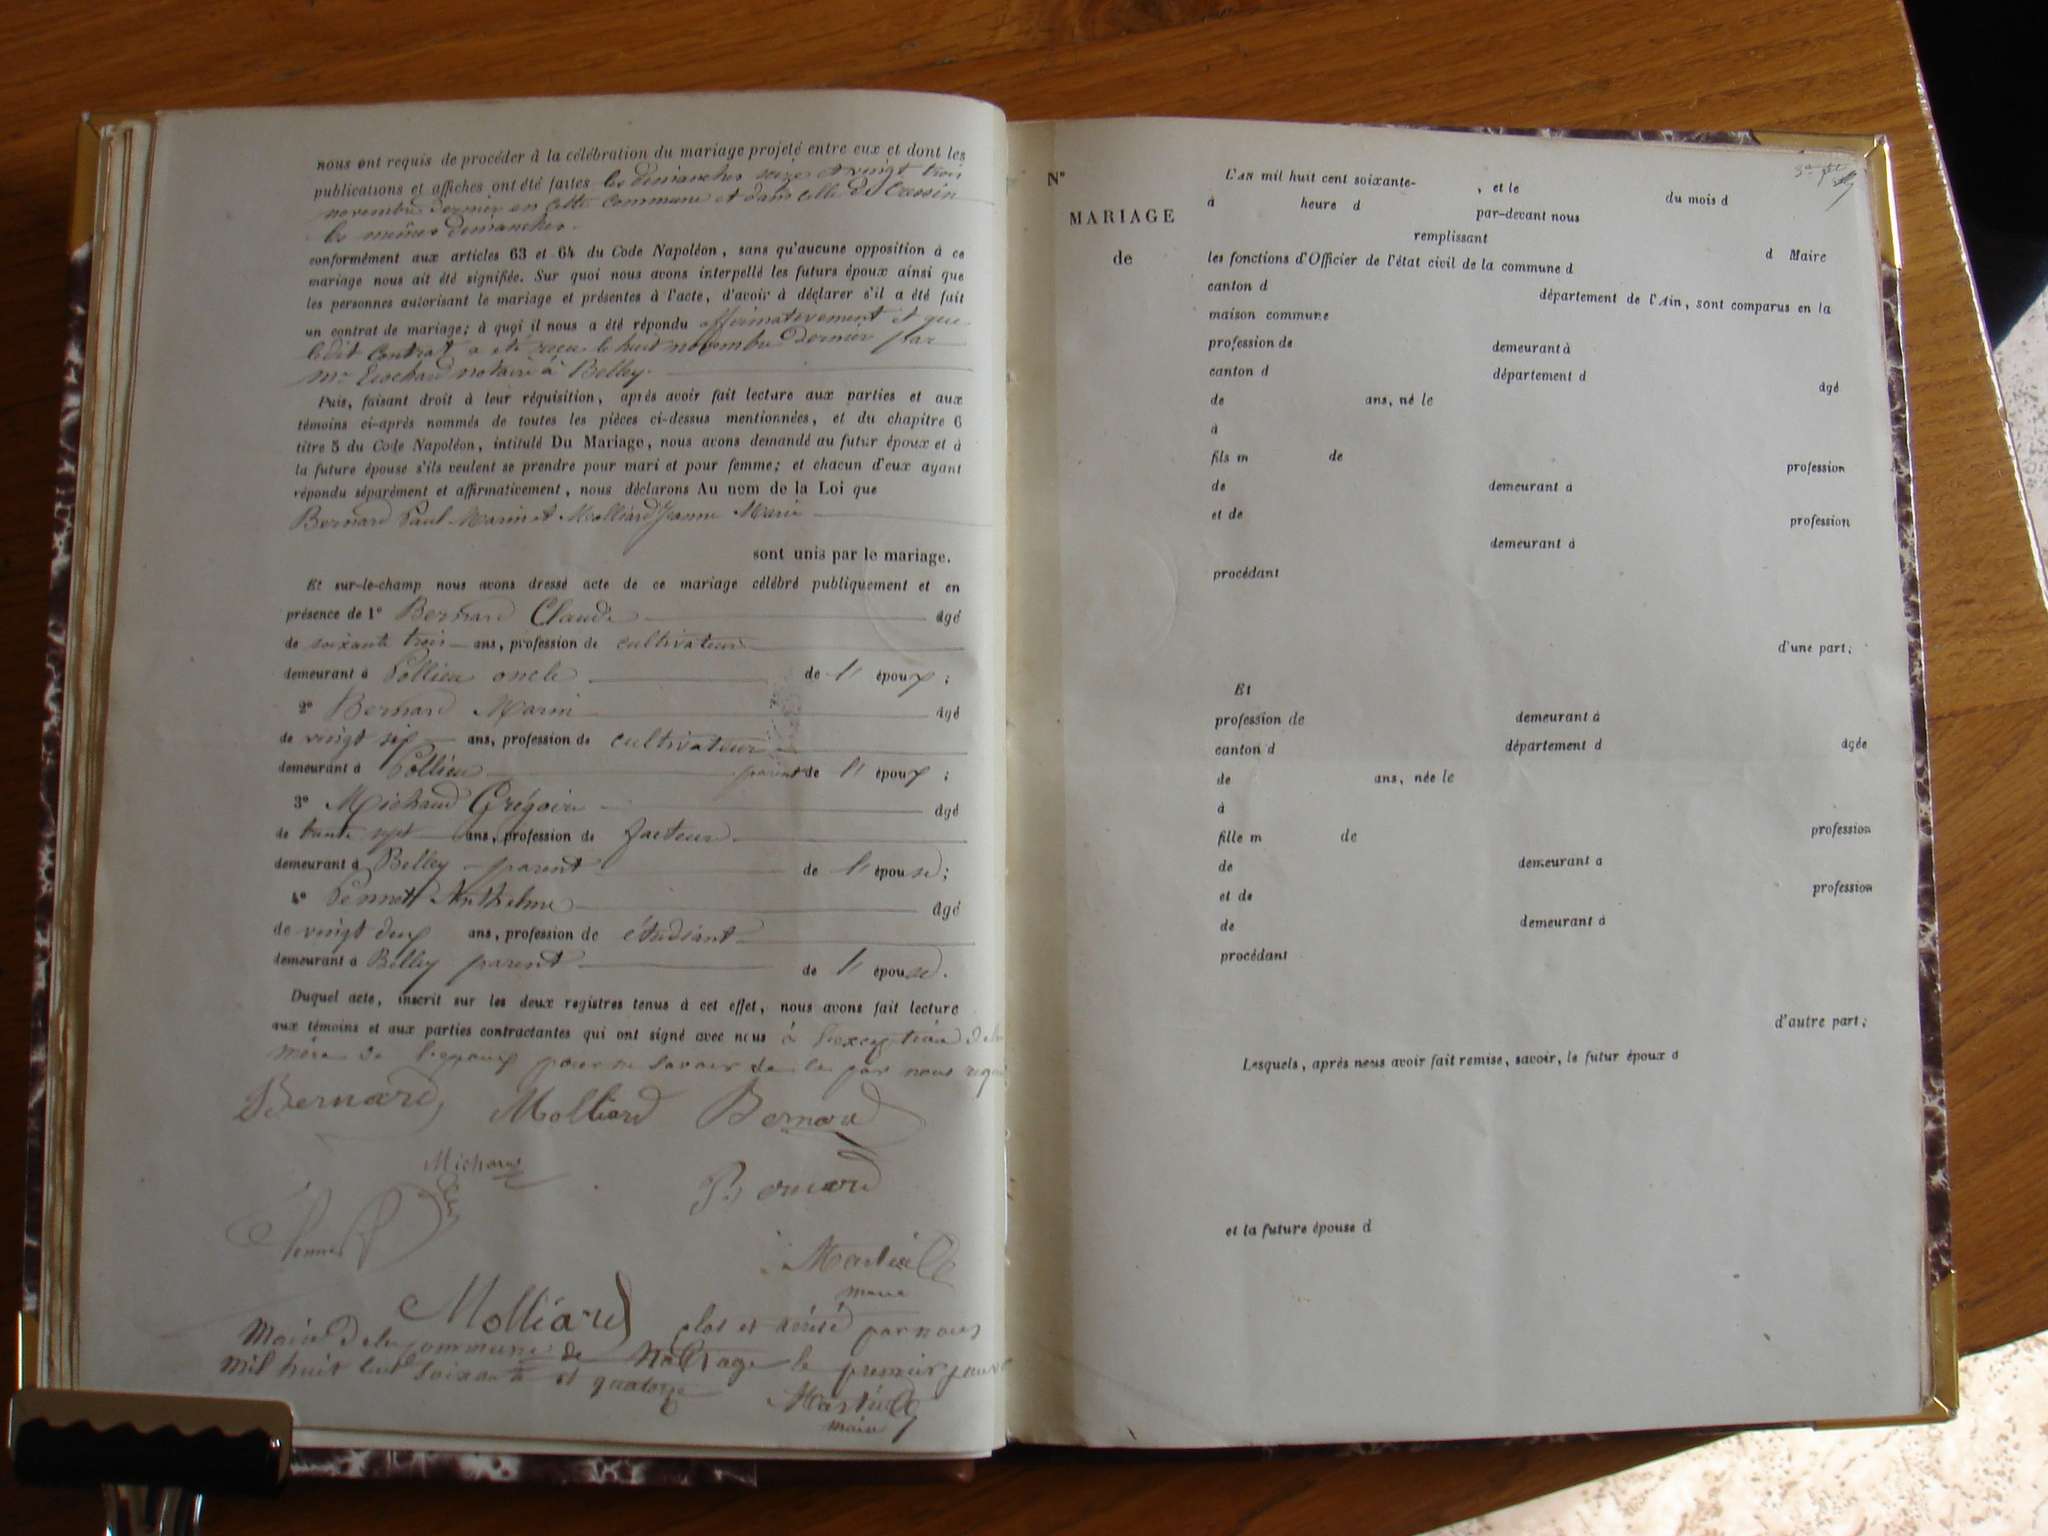 nous ont requis de procéder à la célébration du mariage projeté entre eux et dont les
publications et affiches ont été faites les dimanches seize et vingt trois
novembre dernier en cette commune et dans celle de
les mêmes dimanches.
conformément aux articles 63 et 64 du Code Napoléon, sans qu'aucune opposition à ce
mariage nous ait été signifiée. Sur quoi nous avons interpellé les futurs époux ainsi que
les personnes autorisant le mariage et présentes à l'acte, d'avoir à déclarer s'il a été fait
un contrat de mariage; à quoi il nous a été répondu affirmativement et que
ledit contrat a été reçu le huit novembre dernier par
Me notaire à Belley.
Puis, faisant droit à leur réquisition, après avoir fait lecture aux parties et aux
témoins ci-après nommés de toutes les pièces ci-dessus mentionnées, et du chapitre 6
titre 5 du Code Napoléon, intitulé Du Mariage, nous avons demandé au futur époux et à
la future épouse s'ils veulent se prendre pour mari et pour femme; et chacun d'eux ayant
répondu séparément et affirmativement, nous déclarons Au nom de la Loi que
Bernard Paul Marin et Molliard Jeanne Marie
sont unis par le mariage.
Et sur-le-champ nous avons dressé acte de ce mariage célébré publiquement et en
présence de 1° Bernard Claude âgé
de soixante trois ans, profession de cultivateur
demeurant à Pollieu oncle de l' époux;
2° Bernard Marin âgé
de vingt six ans, profession de cultivateur
demeurant à Pollieu parent de l' époux;
3° Michaud Grégoire âgé
de trente sept ans, profession de facteur
demeurant à Belley parent de l' épouse;
4° Pennet Anthelme âgé
de vingt deux ans, profession de étudiant
demeurant à Belley parent de l' épouse.
Duquel acte, inscrit sur les deux registres tenus à cet effet, nous avons fait lecture
aux témoins et aux parties contractantes qui ont signé avec nous à l'exception de la
mère de l'époux pour ne savoir de ce par nous requis
Bernard Molliard Bernard
Michaud
Bernard
Pennet
maire
Molliard clos et arrêté par nous
Maire de la commune de le premier janvier
mil huit cent soixante et quatorze
maire
N°
MARIAGE
de
L'AN mil huit cent soixante- , et le du mois d
à heure d par-devant nous
remplissant d Maire
les fonctions d'Officier de l'état civil de la commune d
canton d département de l'Ain, sont comparus en la
maison commune
profession de demeurant à
canton d département d âgé
de ans, né le
à
fils m de profession
de demeurant à
et de profession
demeurant à
procédant
d'une part;
Et
profession de demeurant à
canton d département d âgée
de ans, née le
à
fille m de profession
de demeurant à
et de profession
de demeurant à
procédant
d'autre part;
Lesquels, après nous avoir fait remise, savoir, le futur époux d
et la future épouse d